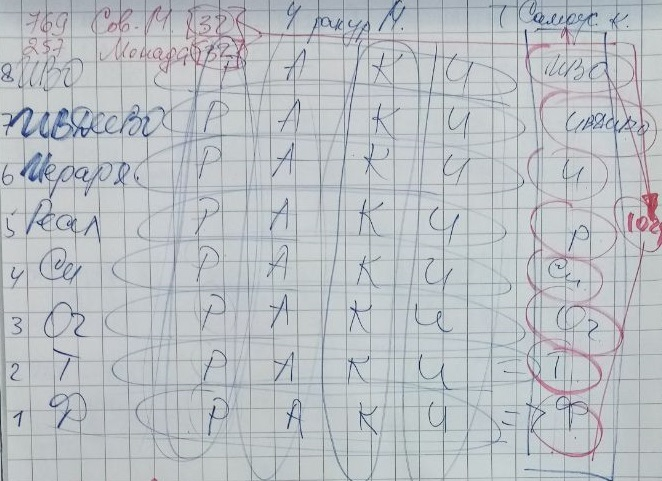 769 Сов. М. (32) 4 ракур М. Самоус. к.
257 Монада (32)
8 ИВО А К И ИВО
7 ИВДИВО Р А К И ИВДИВО
6 Иерарх. Р А К И И
5 Реал Р А К И Р
4 Си Р А К И Си
3 Ог Р А К И Ог
2 Т Р А К И = Т
1 Ф Р А К И = Ф